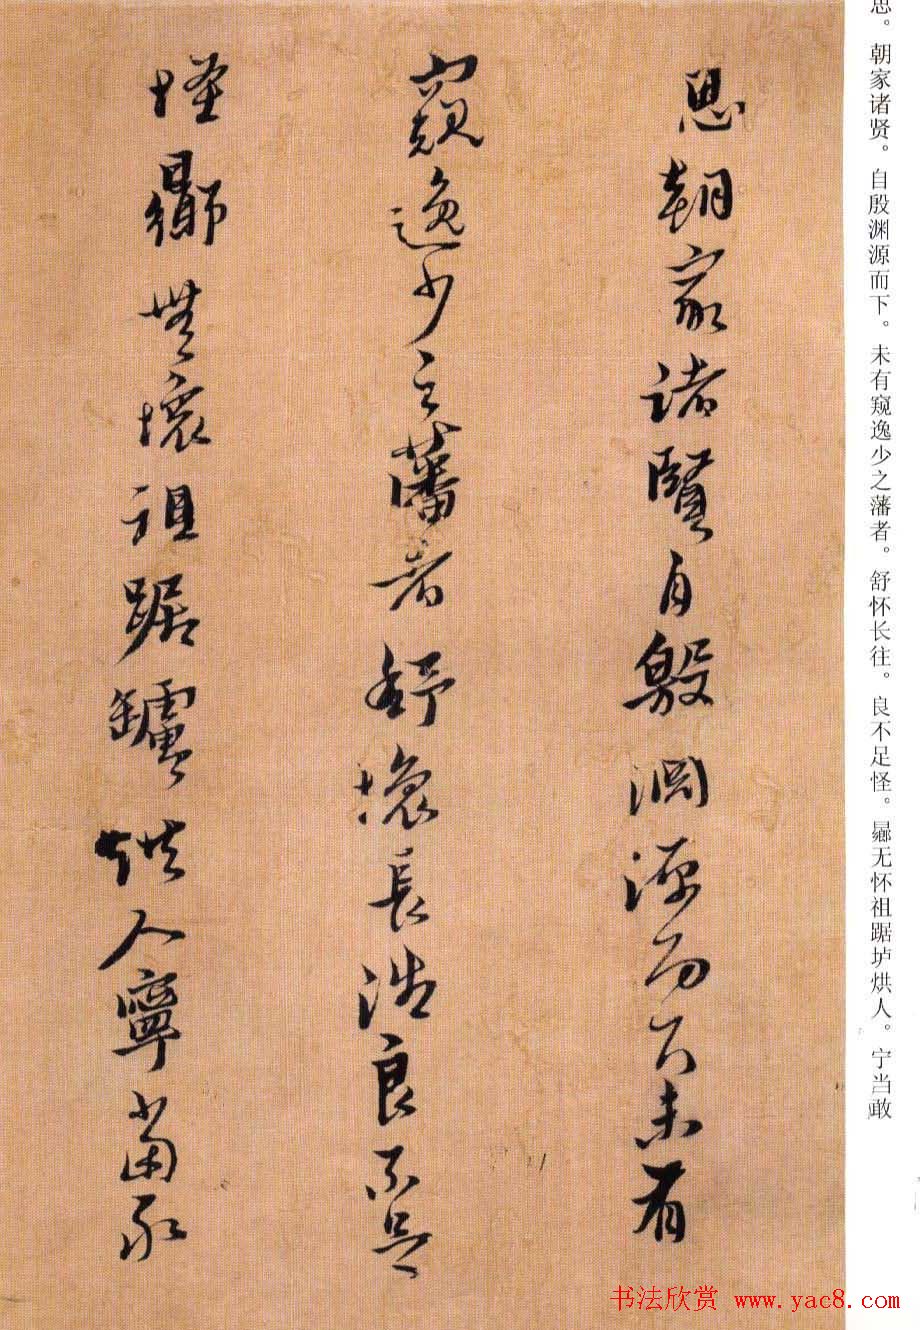 思。朝家诸贤。自殷渊源而下。未有窥逸少之藩者。舒怀长往。良不足怪。曏无怀祖踞垆烘人。宁当敢
思朝家諸賢自殷淵源而下未有
窺逸少之藩者舒懷長往良不足
怪曏無懷祖踞罏烘人寧當敢
书法欣赏 www.yac8.com